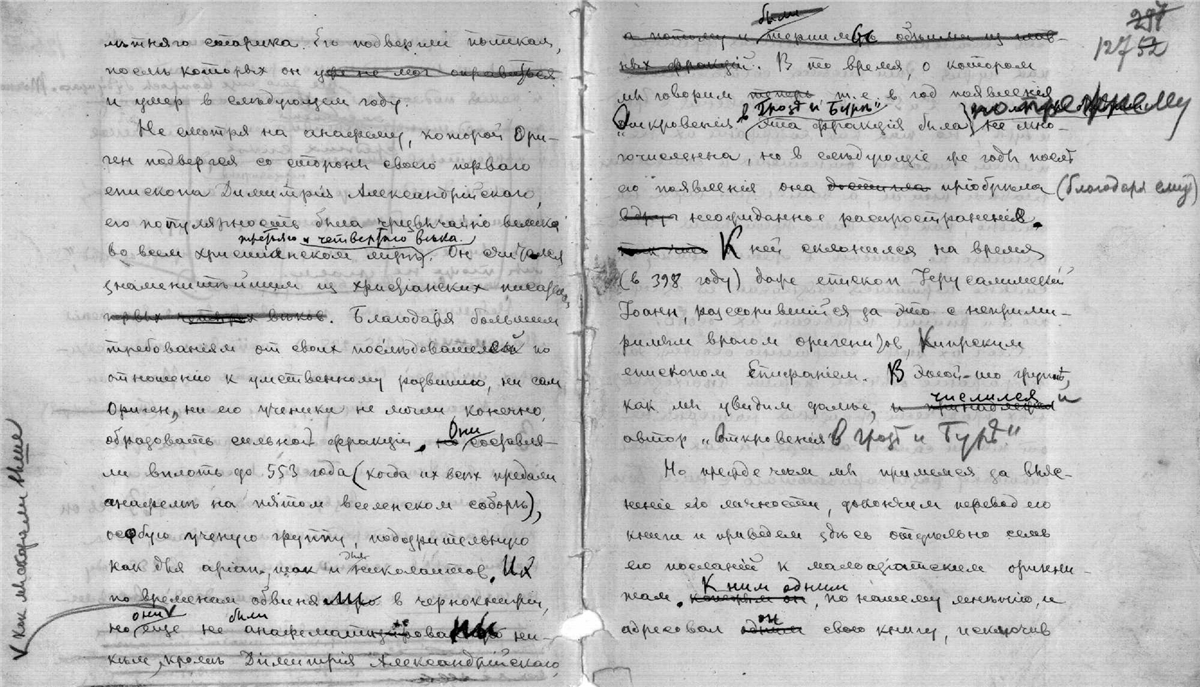 лѣтняго старика. Его подвергли пыткам,
послѣ которых он уже не мог оправиться
и умер в слѣдующем году.
Не смотря на анафему, которой Ори-
ген подвергся со стороны своего перваго
епископа Димитрія Александрійскаго,
его популярность была чрезвычайно велика
третьяго и четвертаго вѣка.
во всем христианском мирѣ. Он считался
знаменитѣйшим из христианских писателей
первых четырех вѣков. Благодаря большим
требованіям от своих послѣдователей по
отношению к умственному развитию, ни сам
Ориген, ни его ученики не могли конечно
образовать сильной фракціи. Они составля-
ли вплоть до 553 года (когда их всѣх предали
анафемѣ на пятом вселенском соборѣ),
особую ученую группу, подозрительную
как для ариан, так и для николаитов. Их
по временам обвиняли в чернокнижіи,
но они еще не были анафематизированы ни-
кѣм, кромѣ Димитрія Александрійскаго,
297
127
были
а потому и
объими из глав-
ных фракцій. В то время, о котором
мы говорим теперь т.е. в год появленія
Откровенія в „Грозѣ и Бурѣ" эта фракція была по прежнему не мно-
гочисленна, но в слѣдующіе же годы послѣ
его появленія она достигла пріобрѣла (благодаря ему)
вдруг неожиданное распространеніе.
так что К ней склонился на время
(в 398 году) даже епископ Іерусалимскій
Іоанн, разссорившійся за это с неприми-
римым врагом оригенизов, Кипрским
епископом Епифаніем. В этой-то группѣ,
как мы увидим дальше, числился и
автор „Откровенія в грозѣ и бурѣ."
Но прежде чѣм мы примемся за выяс-
неніе его личности, докончим перевод его
книги и приведем здѣсь отдѣльно семь
его посланій к малоазіатским ориге-
там. К ним одним, по нашему мнѣнію, и
адресовал он свою книгу, исключив